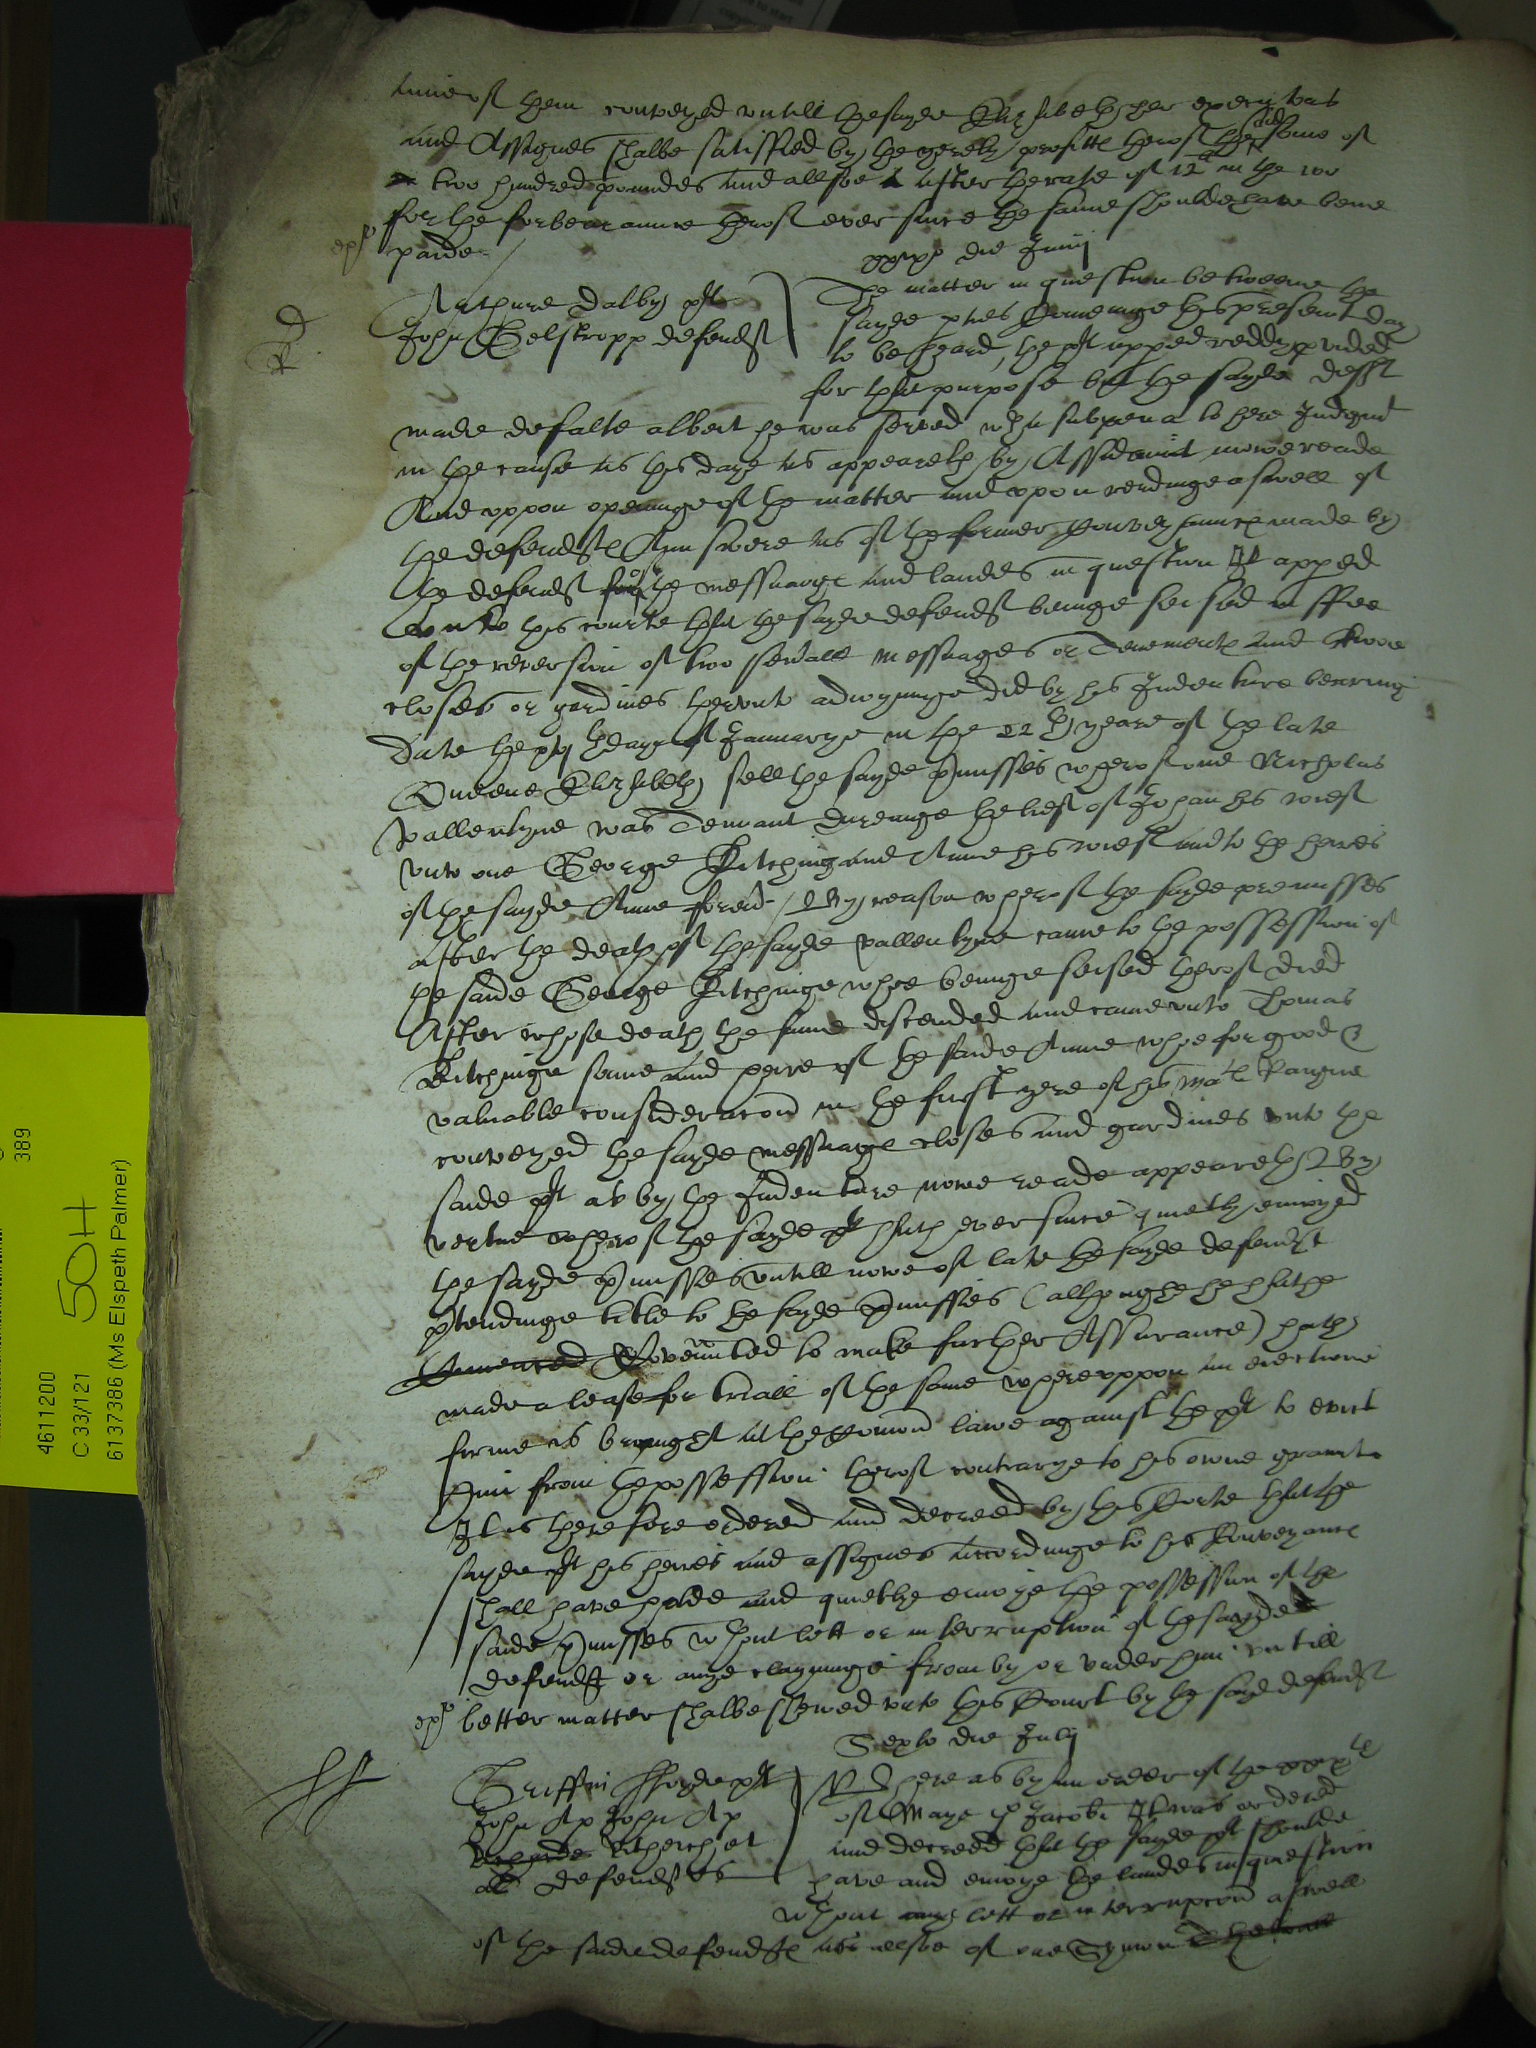 unie of them conveyed untill the sayde Elizabeth her executors
and Assignes shalbe satisfied by the yerely profitte therof the said some of
two hundred poundes and allsoe after the rate of 12 in the 100
for the forbearaunce therof ever since the same shoulde have bene
paide
die Junij
Arthure Dalby plt
John Gelstropp defendt
The matter in question betweene the
sayde pties comeinge this present day
to be heard, the plt apped reddy pvided
for that purpose but the sayde deft
made defalte albeit he was served wth a subpena to here Judgmt
in the cause as this daye as appeareth by Affidavit nowe reade
And uppon openinge of the matter and upon readinge aswell of
the defendte Answere as of the former Conveyaunce made by
the defendt of the messuage and landes in question It apped
unto this courte that the sayde defendt beinge seised in ffee
of the reversion of two severall messuages or Tenemente and twoe
closes or gardines therunto adioyninge did by his Indenture bearing
Date the daye of Januarye in the 22 th yeare of the late
Queene Elizabeth sell the sayde pmisses wherof one Nicholas
Vallentyne was Tennant dureinge the lief of Johan his wief
unto one George Kitching and Anne his wief and to the heires
of the sayde Anne forever / By reason wherof the sayde premisses
after the death of the sayde Vallentyne came to the possession of
the saide George Kitchinge whoe beinge seised therof died
After whose death the same discended and came unto Thomas
Kitchinge sonne and heire of the saide Anne whoe for good &
valuable consideracon in the first yere of his matie Raigne
conveyed the sayde messuage closes and gardines unto the
saide plt as by the Indenture nowe reade appeareth / By
vertue wherof the sayde plt hath ever since quietly enioyed
the sayde pmisses untill nowe of late the sayde defendt
ptendinge title to the sayde pmisses (althoughe he hathe
Covenanted to make further Assurance) hath
made a lease for triall of the same whereuppon an eiectione
firme is brought at the comon lawe against the plt to evict
him from the possession therof contrarye to his owne graunte
It is therefore ordered and decreed by this Corte that the
sayde plt his heires and assignes accordinge to his Conveyance
shall have holde and quietlye enioye the possession of the
saide pmisses wthout lett or interruption of the sayde
defendt or anye clayminge from by or under him untill
better matter shalbe shewed unto this Court by the sayd defendt
Sexto die Julij
Griffin plt
John Ap John Ap
Rytherch et
al defendtes
Whereas by an order of the
of Maye po Jacobi It was ordered
and decreed that the sayde plt shoulde
have and enioye the landes in question
wthout any lett or interrupcon aswell
of the saide defendte as allsoe of one Symon
4611200
C 33/121 50H
6137386 (Ms Elspeth Palmer)
389